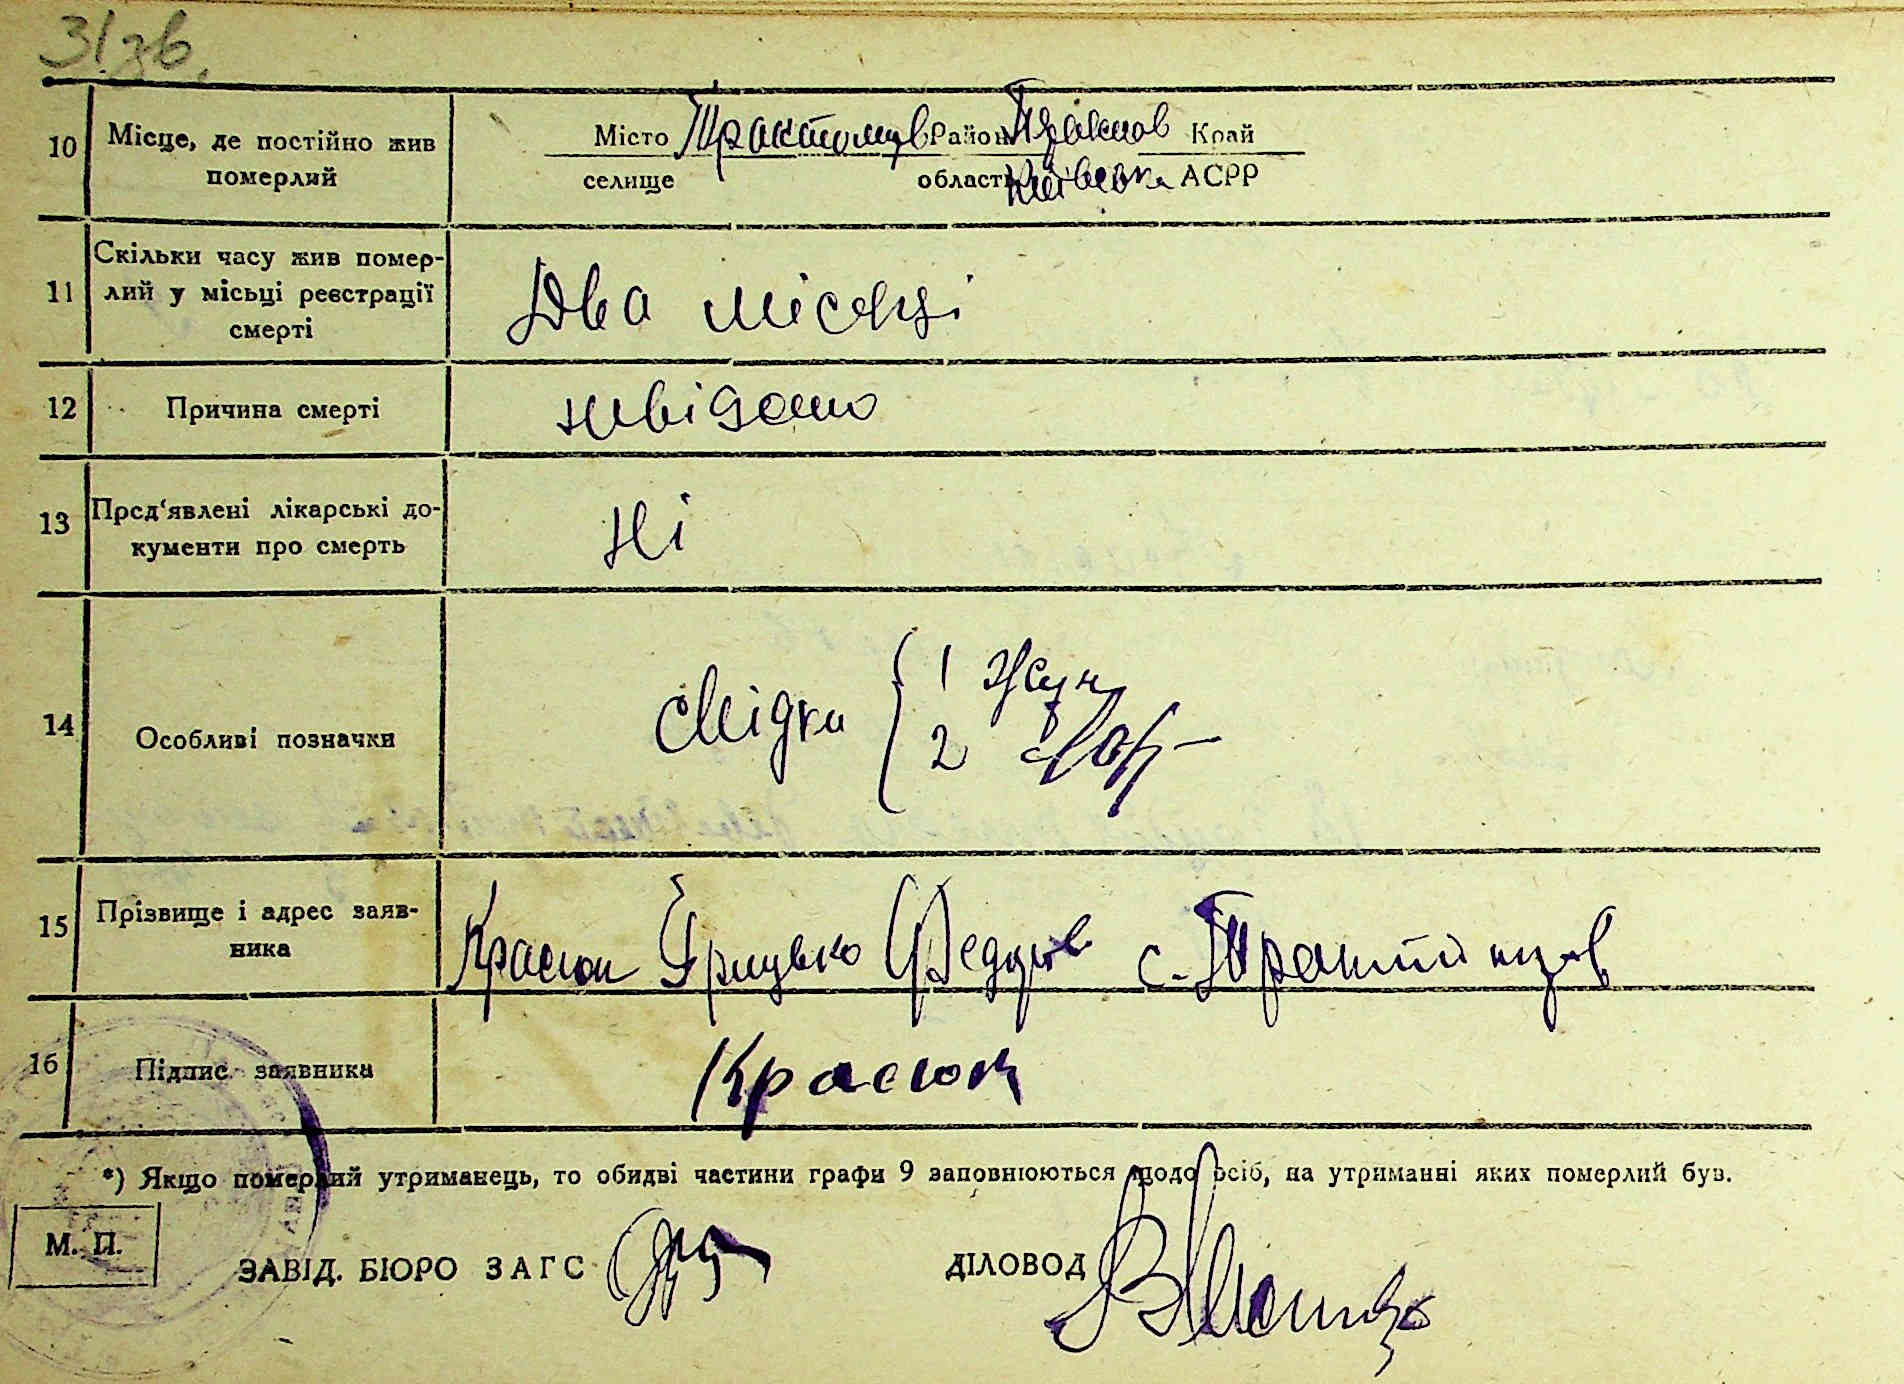 31 зв.
10 Місце, де постійно жив померлий
Місто Трактомирів Район Край
селище області АСРР
11 Скільки часу жив помер-
лий у місьці реєстрації
смерті
Два місяці
12 Причина смерті
невідомо
13 Пред'явлені лікарські до-
кументи про смерть
Ні
14 Особливі позначки
свідки { 1
2
15 Прізвище і адрес заяв-
ника
Красюк Грицько с.
16 Підпис заявника
Красюк
*) Якщо померлий утриманець, то обидві частини графи 9 заповнюються щодо осіб, на утриманні яких померлий був.
М. П.
ЗАВІД. БЮРО ЗАГС
ДІЛОВОД